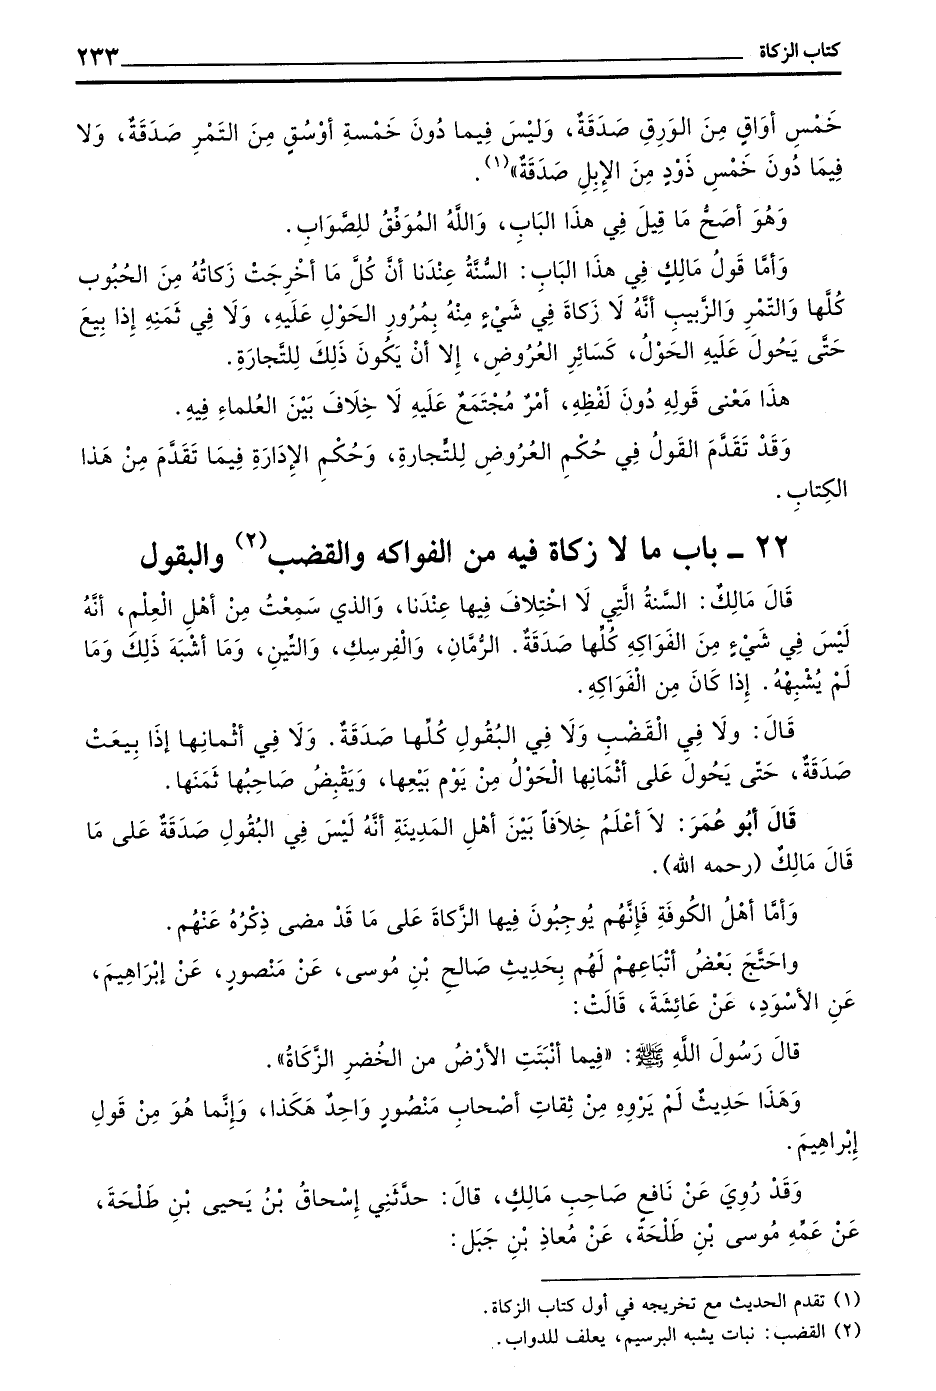 كتاب الزكاة ٢٣٣
خَمْسِ أوَاقٍ مِنَ الوَرِقِ صَدَقَةٌ، وَليْسَ فِيما دُونَ خَمْسةِ أوْسُقٍ مِنَ التَمْرِ صَدَقَةٌ، وَلا
فِيمَا دُونَ خَمْسِ ذَوْدٍ مِنَ الإِبِلِ صَدَقَةٌ»(١).
وَهُوَ أصَحُّ مَا قِيلَ فِي هذَا البَابِ، وَاللَّهُ المُوَفِّقُ للِصَّوَابِ.
وَأمَّا قَولُ مَالِكٍ فِي هذَا البَابِ: السُّنَّةُ عِنْدَنا أنَّ كُلَّ مَا أخْرِجَتْ زَكاتُهُ مِنَ الحُبُوب
كُلِّها وَالتّمْرِ وَالزَّبيبِ أنَّهُ لَا زَكاةَ فِي شَيْءٍ مِنْهُ بِمُرُورِ الحَوْلِ عَلَيهِ، وَلَا فِي ثَمَنِهِ إذَا بِيعَ
حَتَّى يَحُولَ عَلَيهِ الحَوْلُ، كَسَائِرِ العُرُوضِ، إلا أنْ يَكُونَ ذَلِكَ لِلتَّجارَةِ.
هذَا مَعْنى قَولِهِ دُونَ لَفْظِهِ، أمْرٌ مُجْتَمَعٌ عَلَيهِ لَا خِلَافَ بَيْنَ العُلماءِ فِيهِ.
وَقَدْ تَقَدَّمَ القَولُ فِي حُكْمِ العُرُوضِ لِلتَّجارةِ، وَحُكْمِ الإدَارَةِ فِيمَا تَقَدَّمَ مِنْ هَذا
الكِتابِ.
٢٢ ـ باب ما لا زكاة فيه من الفواكه والقضب(٢) والبقول
قَالَ مَالِكٌ: السَّنةُ الَّتِي لَا اخْتِلافَ فِيها عِنْدَنا، وَالذي سَمِعْتُ مِنْ أهْلِ الْعِلْمِ، أنَّهُ
لَيْسَ فِي شَيْءٍ مِنَ الفَوَاكِهِ كُلِّها صَدَقَةٌ. الرُّمَّانِ، وَالْفِرسِكِ، وَالتِّينِ، وَمَا أشْبَهَ ذَلِكَ وَمَا
لَمْ يُشْبِهْهُ. إذا كَانَ مِن الْفَوَاكِهِ.
قَالَ: ولَا فِي الْقَضْبِ وَلَا فِي البُقُولِ كُلِّها صَدَقَةٌ. وَلَا فِي أثْمانِها إذَا بِيعَتْ
صَدَقَةٌ، حَتّى يَحُولَ عَلى أثْمَانِها الْحَوْلُ مِنْ يَوْمِ بَيْعِها، وَيَقْبِضُ صَاحِبُها ثَمَنَها.
قَالَ أبُو عُمَرَ: لاَ أعْلَمُ خِلاَفاً بَيْنَ أهْلِ المَدِينَةِ أنَّهُ لَيْسَ فِي البُقُولِ صَدَقَةٌ عَلى مَا
قَالَ مَالِكٌ (رحمه الله).
وَأمَّا أهْلُ الكُوفَةِ فَإنَّهُم يُوجِبُونَ فِيها الزَّكاةَ عَلى مَا قَدْ مضى ذِكْرُهُ عَنْهُم.
واحَتَّجَ بَعْضُ أتْبَاعِهِمْ لَهُم بِحَدِيثِ صَالحِ بْنِ مُوسى، عَنْ مَنْصُورٍ، عَنْ إبْرَاهِيمَ،
عَنِ الأسْوَدِ، عَنْ عَائِشَةَ، قَالَتْ:
قالَ رَسُولَ اللَّهِ ﷺ: «فِيما أنْبَتَتِ الأرْضُ من الخُضرِ الزَّكَاةُ».
وَهَذَا حَدِيثٌ لَمْ يَرْوِهِ مِنْ ثِقاتِ أصْحابِ مَنْصُورٍ وَاحِدٌ هَكذا، وَإنَّما هُوَ مِنْ قَولِ
إبْراهِيمَ.
وَقَدْ رُوِيَ عَنْ نَافعٍ صَاحِبِ مَالِكٍ، قالَ: حدَّثَنِي إسْحاقُ بْنُ يَحيى بْنِ طَلْحَةَ،
عَنْ عَمِّهِ مُوسى بْنِ طَلْحَةَ، عَنْ مُعاذِ بْنِ جَبَل:
(١) تقدم الحديث مع تخريجه في أول كتاب الزكاة.
(٢) القضب: نبات يشبه البرسيم، يعلف للدواب.